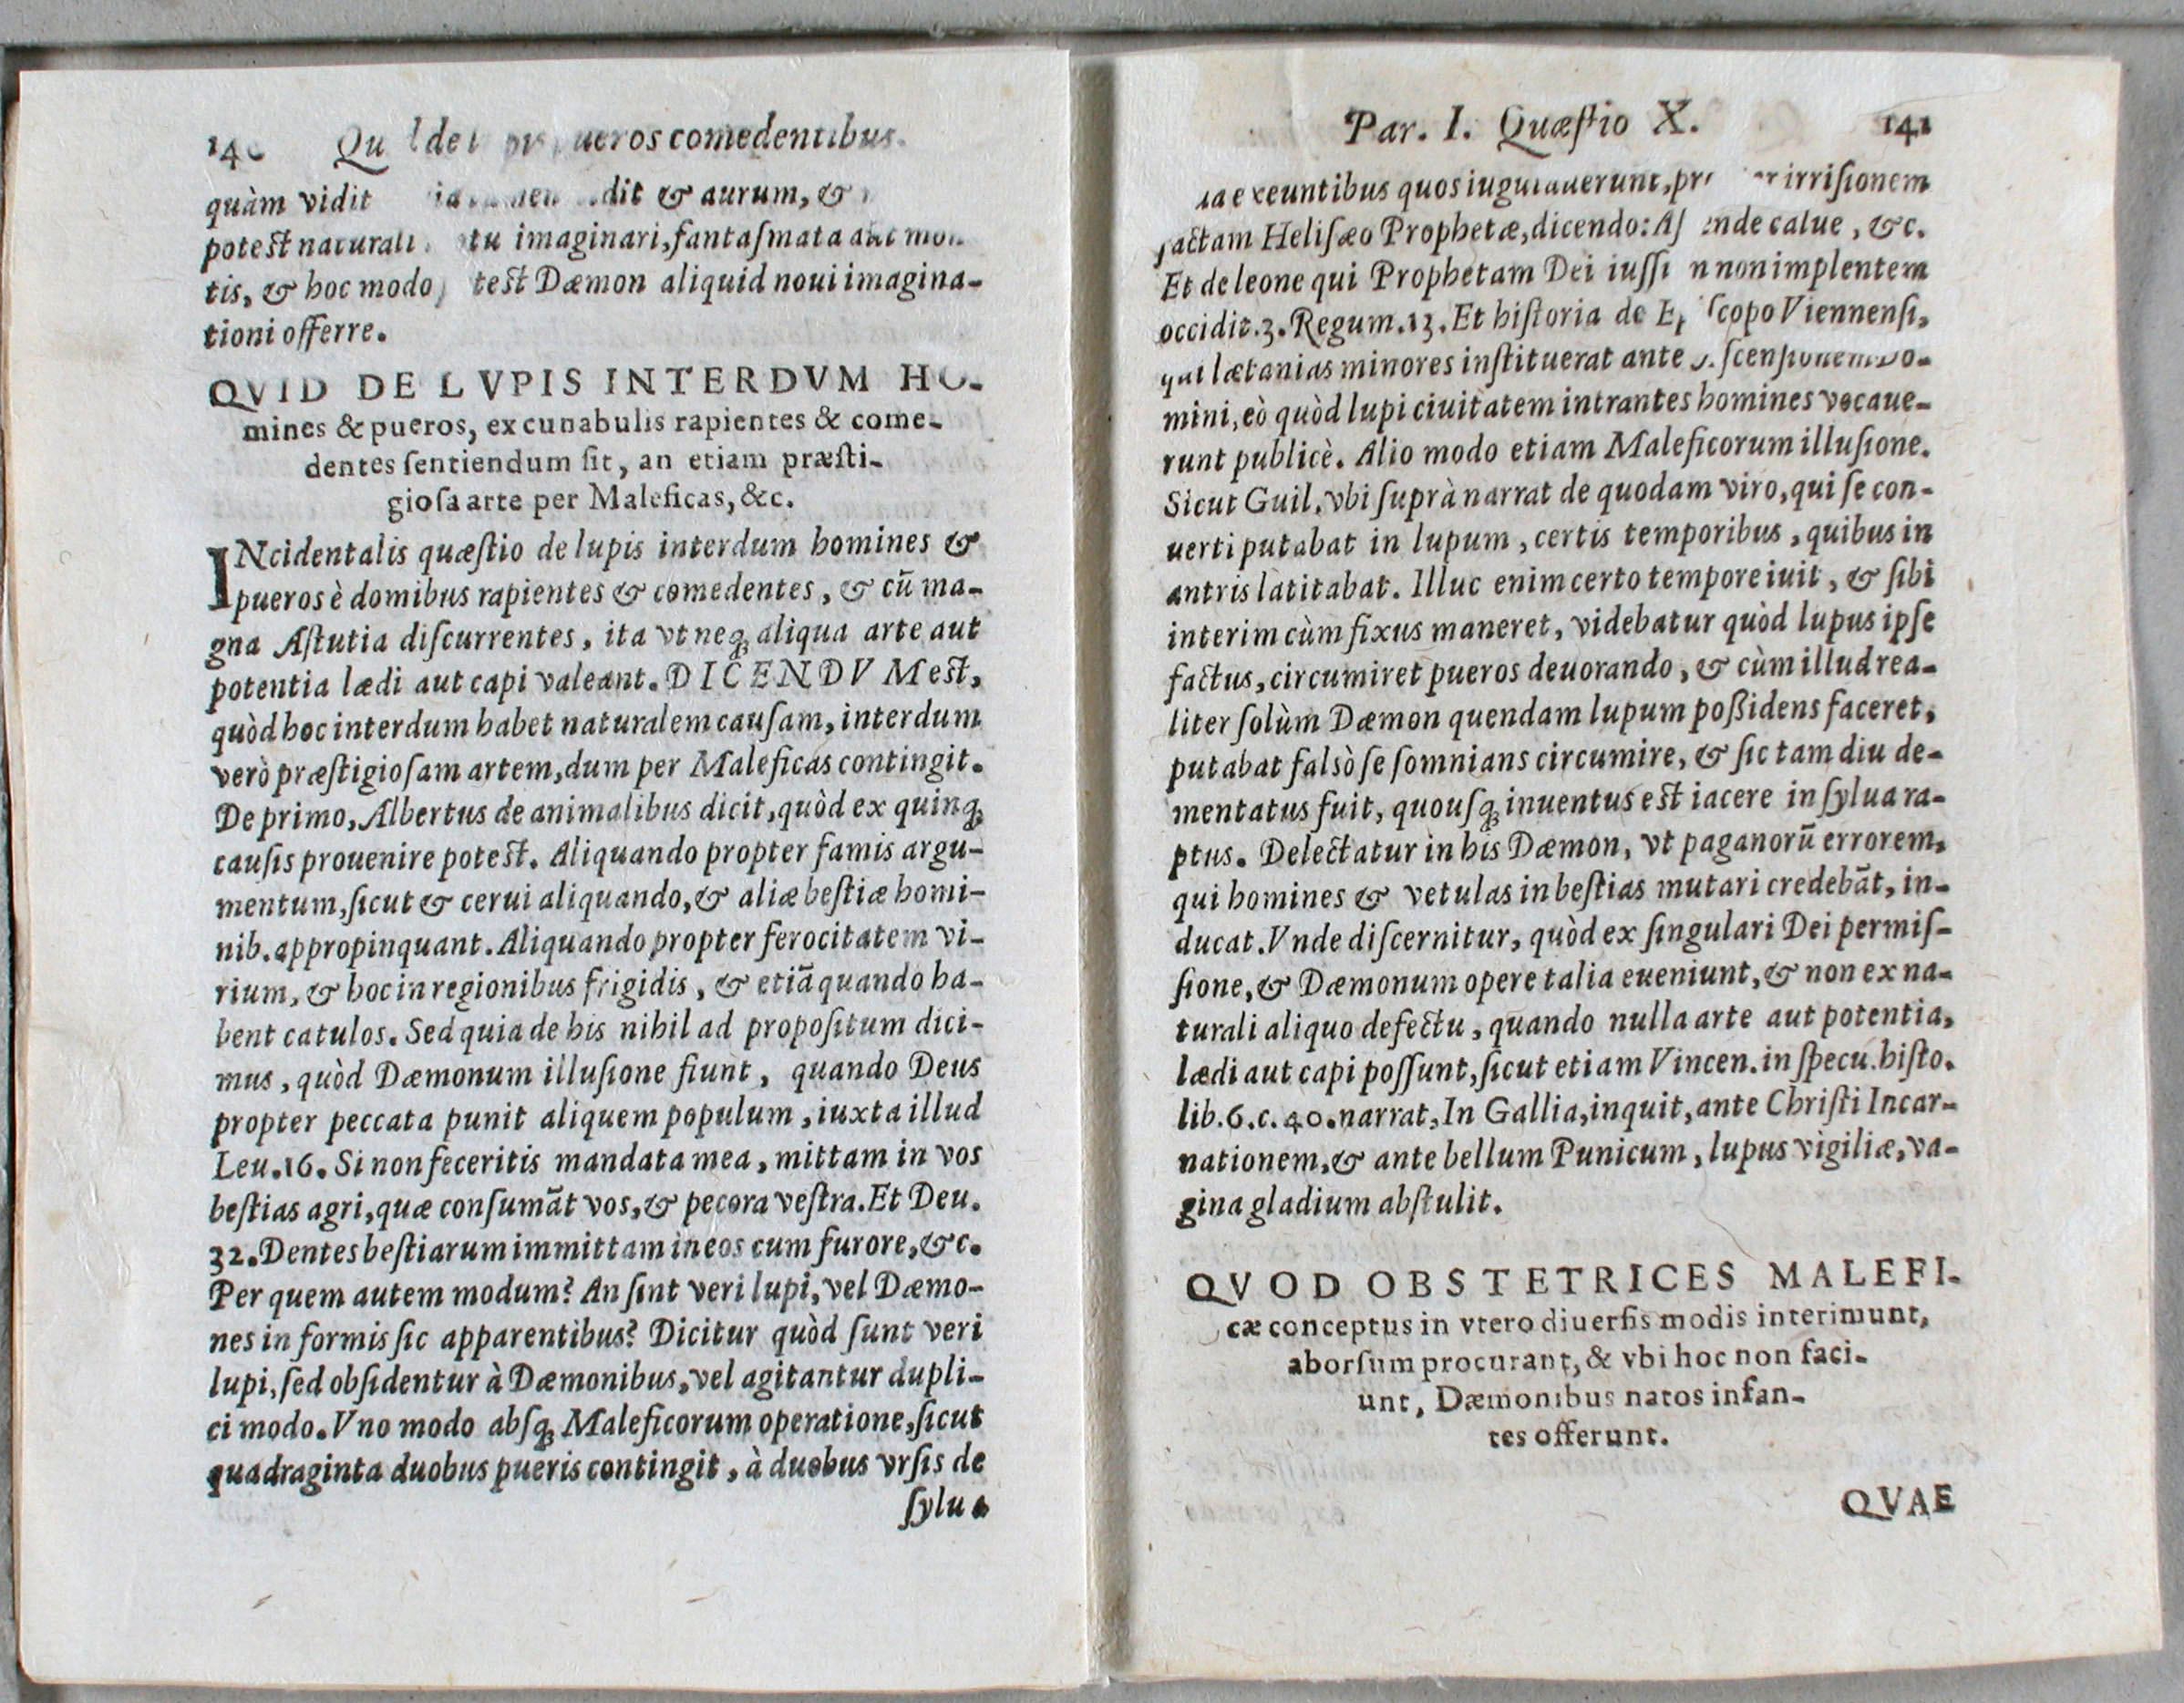 comedentibus.
quàm vidit & aurum, &
potest imaginari, fantaſmata
tis, & hoc modo Dæmon aliquid noui imagina-
tioni offerre.
QVID DE LVPIS INTERDVM HO-
mines & pueros, ex cunabulis rapientes & come-
dentes ſentiendum ſit, an etiam præſti-
gioſa arte per Maleficas, &c.
INcidentalis quæſtio de lupis interdum homines &
pueros è domibus rapientes & comedentes, & cũ ma-
gna Aſtutia diſcurrentes, ita vt neq; aliqua arte aut
potentia lædi aut capi valeant. DICENDVM est,
quòd hoc interdum habet naturalem cauſam, interdum
verò præſtigioſam artem, dum per Maleficas contingit.
De primo, Albertus de animalibus dicit, quòd ex quinq;
cauſis prouenire potest. Aliquando propter famis argu-
mentum, ſicut & cerui aliquando, & aliæ beſtiæ homi-
nib. appropinquant. Aliquando propter ferocitatem vi-
rium, & hoc in regionibus frigidis, & etiã quando ha-
bent catulos. Sed quia de his nihil ad propoſitum dici-
mus, quòd Dæmonum illuſione fiunt, quando Deus
propter peccata punit aliquem populum, iuxta illud
Leu. 16. Si non feceritis mandata mea, mittam in vos
beſtias agri, quæ conſumãt vos, & pecora veſtra. Et Deu.
32. Dentes beſtiarum immittam in eos cum furore, &c.
Per quem autem modum? An ſint veri lupi, vel Dæmo-
nes in formis ſic apparentibus? Dicitur quòd ſunt veri
lupi, ſed obſidentur à Dæmonibus, vel agitantur dupli-
ci modo. Vno modo abſq; Maleficorum operatione, ſicut
quadraginta duobus pueris contingit, à duobus vrſis de
ſylua
Par. I. Quæſtio X. 141
exeuntibus quos irriſionem
factam Heliſæo Prophetæ, dicendo: calue, &c.
Et de leone qui Prophetam Dei non implentem
occidit. 3. Regum. 13. Et hiſtoria de Viennenſi,
lætanias minores inſtituerat ante Do-
mini, eò quòd lupi ciuitatem intrantes homines vocaue-
runt publicè. Alio modo etiam Maleficorum illuſione.
Sicut Guil. vbi ſuprà narrat de quodam viro, qui ſe con-
uerti putabat in lupum, certis temporibus, quibus in
antris latitabat. Illuc enim certo tempore iuit, & ſibi
interim cùm fixus maneret, videbatur quòd lupus ipſe
factus, circumiret pueros deuorando, & cùm illud rea-
liter ſolùm Dæmon quendam lupum poßidens faceret,
putabat falsò ſe ſomnians circumire, & ſic tam diu de-
mentatus fuit, quouſq; inuentus est iacere in ſylua ra-
ptus. Delectatur in his Dæmon, vt paganorũ errorem,
qui homines & vetulas in beſtias mutari credebãt, in-
ducat. Vnde diſcernitur, quòd ex ſingulari Dei permiſ-
ſione, & Dæmonum opere talia eueniunt, & non ex na-
turali aliquo defectu, quando nulla arte aut potentia,
lædi aut capi poſſunt, ſicut etiam Vincen. in ſpecu. hiſto.
lib. 6. c. 40. narrat, In Gallia, inquit, ante Chriſti Incar-
nationem, & ante bellum Punicum, lupus vigiliæ, va-
gina gladium abſtulit.
QVOD OBSTETRICES MALEFI-
cæ conceptus in vtero diuerſis modis interimunt,
aborſum procurant, & vbi hoc non faci-
unt, Dæmonibus natos infan-
tes offerunt.
QVAE